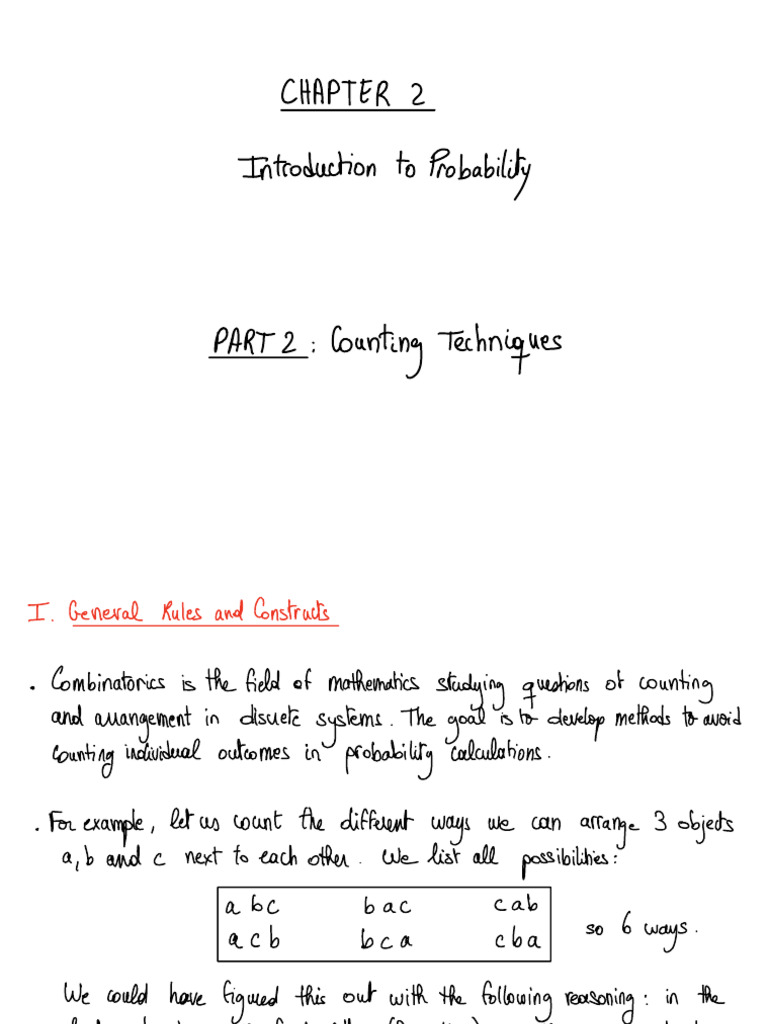 CHAPTER 2
Introduction to Probability
PART 2 : Counting Techniques
I. General Rules and Constructs
. Combinatorics is the field of mathematics studying questions of counting
and arrangement in discrete systems. The goal is to develop methods to avoid
counting individual outcomes in probability calculations.
. For example, let us count the different ways we can arrange 3 objects
a, b and c next to each other. We list all possibilities:
a b c b a c c a b
a c b b c a c b a
so 6 ways.
We could have figured this out with the following reasoning: in the